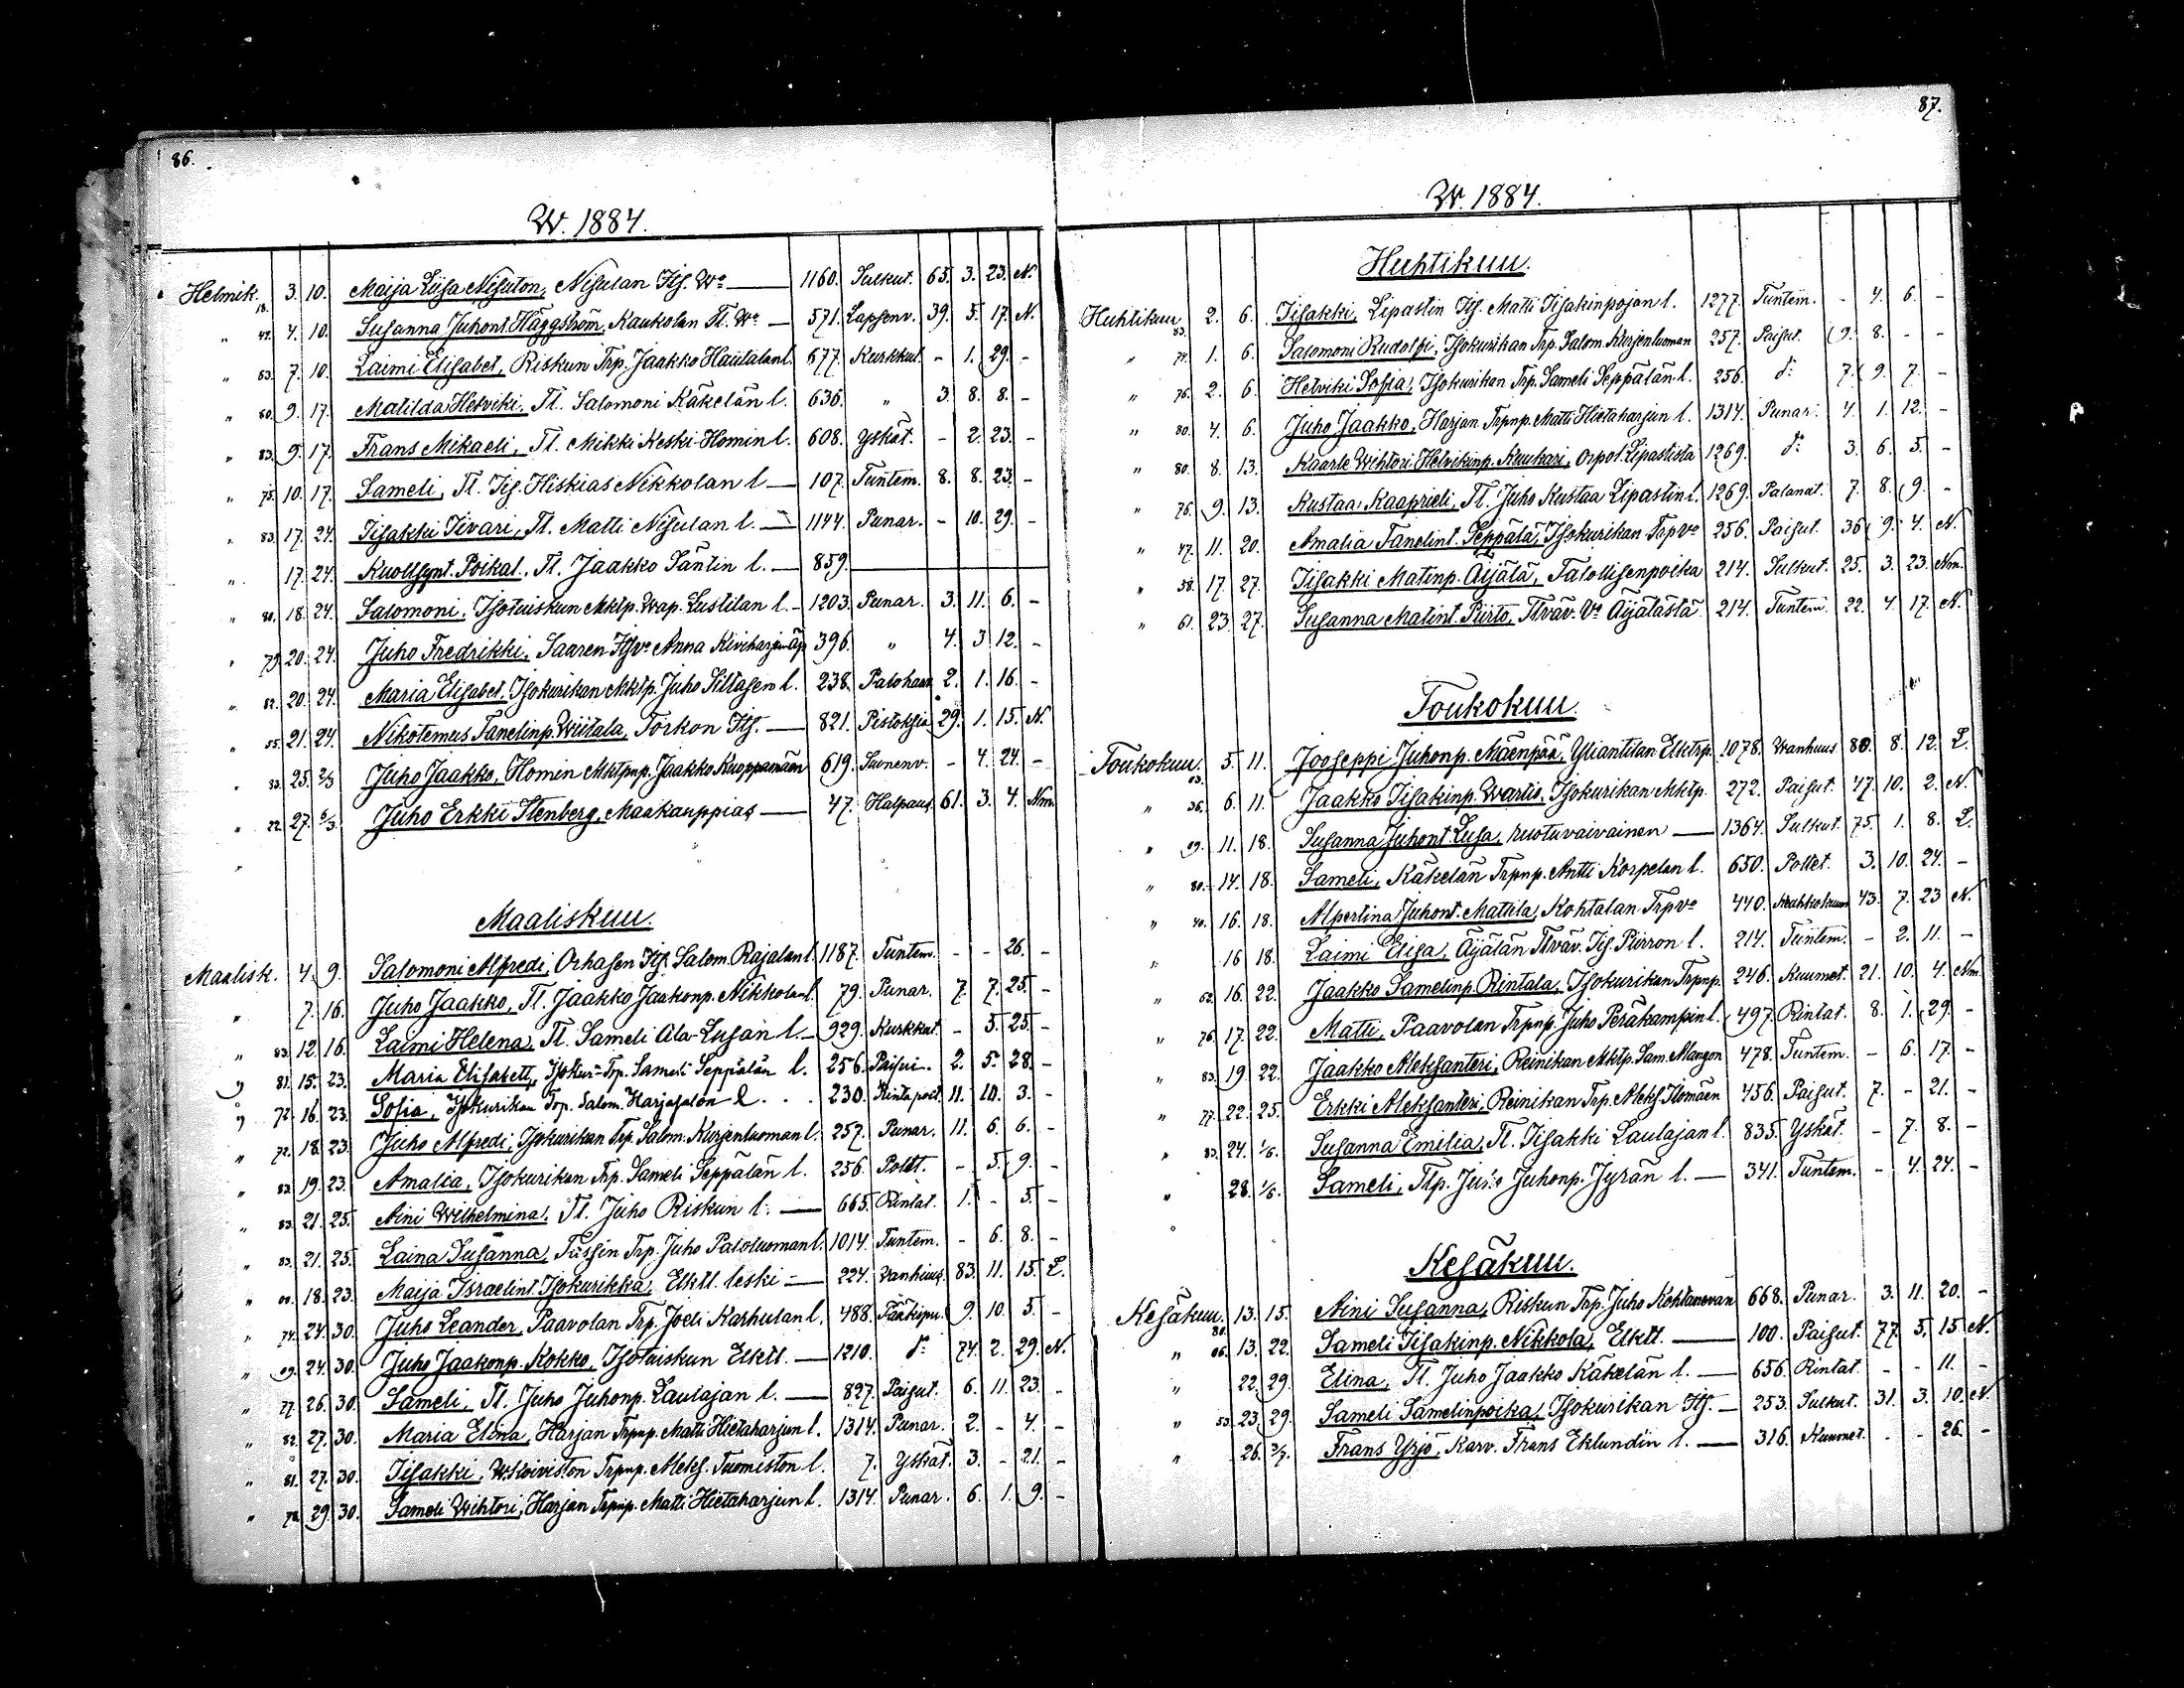 86.
W. 1884.
Helmik. 18. 3. 10. Maija Liisa Nisuton, Nisulan Its. Wo — 1160. Sulkut. 65. 3. 23. N.
„ 44. 4. 10. Susanna Juhont. Häggström, Kaukolan Tl. Wo — 571. Lapsenv. 39. 5. 17. N.
„ 83. 7. 10. Laimi Elisabet, Riskun Trp. Jaakko Hautalan l. 677. Kurkkut. - 1. 29. -
„ 80. 9. 17. Matilda Helviki, Tl. Salomoni Käkelän l. 636. „ 3. 8. 8. -
„ 83. 9. 17. Frans Mikaeli, Tl. Mikki Keski-Homin l. 608. Yskät. - 2. 23. -
„ 75. 10. 17. Sameli, Tl. Iis. Hiskias Nikkolan l — 107. Tuntem. 8. 8. 23. -
„ 83. 17. 24. Iisakki Iivari, Tl. Matti Nisulan l. — 1144. Punar. - 10. 29. -
„ 17. 24. Kuollsynt. Poikal., Tl. Jaakko Säntin l. — 859.
„ 80. 18. 24. Salomoni, Isotuiskun Mktp. Wap. Lustilan l. - 1203. Punar. 3. 11. 6. -
„ 79. 20. 24. Juho Fredrikki, Saaren Itsvo Anna Kiviharjun äp. 396. „ 4. 3. 12. -
„ 82. 20. 24. Maria Elisabet, Isokurikan Mktp. Juho Siltasen l. 238. Palohaav. 2. 1. 16. -
„ 55. 21. 24. Nikotemus Tanelinp. Wiitala, Torkon Its. — 821. Pistoksia 29. 1. 15. N.
„ 83. 25. 2/3 Juho Jaakko, Homin Mktpnp. Jaakko Kuoppamäen 619. Suonenv. - 4. 24. -
„ 22. 27. 6/3. Juho Erkki Stenberg, Maakauppias — 47. Halpaus. 61. 3. 4. Nm.
Maaliskuu.
Maalisk. 4. 9. Salomoni Alfredi, Orhasen Its. Salom. Rajalan l. 1187. Tuntem. - - 26. -
„ 7. 16. Juho Jaakko, Tl. Jaakko Jaakonp. Nikkolan l. 79. Punar. 7. 7. 25. -
„ 83. 12. 16. Laimi Helena, Tl. Sameli Ala-Lusan l. - 929. Kurkkut. - 5. 25. -
„ 81. 15. 23. Maria Elisabett, Isokur= Trp. Sameli Seppälän l. 256. Paisu. 2. 5. 28. -
„ 72. 16. 23. Sofia, Isokurikan Trp. Salom. Harjasalon l. . . 230. Rintapoet. 11. 10. 3. -
„ 72. 18. 23. Juho Alfredi, Isokurikan Trp. Salom. Kurjenluoman l. 257. Punar. 11. 6. 6. -
„ 83. 19. 23. Amalia, Isokurikan Trp. Sameli Seppälän l. 256. Poltt. - 5. 9. -
„ 83. 21. 25. Aini Wilhelmina, Tl. Juho Riskun l. — 665. Rintat. 1. - 5. -
„ 83. 21. 25. Laina Susanna, Tussin Trp. Juho Paloluoman l. 1014. Tuntem. - 6. 8. -
„ 00. 18. 23. Maija Israelint. Isokurikka, Elktl. leski — 224. Vanhuus. 83. 11. 15. L.
„ 74. 24. 30. Juho Leander, Paavolan Trp. Joeli Karhulan l. 488. Pääkipu. 9. 10. 5. -
„ 09. 24. 30. Juho Jaakonp. Kokko, Isotuiskun Elktl. — 1210. do 74. 2. 29. N.
„ 77. 26. 30. Sameli, Tl. Juho Juhonp. Laulajan l. — 827. Paisut. 6. 11. 23. -
„ 82. 27. 30. Maria Elina, Harjan Trpnp. Matti Hietaharjun l. 1314. Punar. 2. - 4. -
„ 81. 27. 30. Iisakki, W.Koiviston Trpnp. Aleks. Tuomiston l. 7. Yskät. 3. - 21. -
„ 78. 29. 30. Sameli Wihtori, Harjan Trpnp. Matti Hietaharjun l. 1314. Punar. 6. 1. 9. -
87.
W. 1884.
Huhtikuu.
Huhtikuu. 83. 2. 6. Iisakki, Lipastin Its. Matti Iisakinpojan l. 1277. Tuntem. - 4. 6. -
„ 74. 1. 6. Salomoni Rudolfi, Isokurikan Trp. Salom. Kurjenluoman 257. Paisut. 9. 8. - -
„ 76. 2. 6. Helviki Sofia, Isokurikan Trp. Sameli Seppälän l. 256. do 7. 9. 7. -
„ 80. 4. 6. Juho Jaakko, Harjan Trpnp. Matti Hietaharjun l. 1314. Punar. 4. 1. 12. -
„ 80. 8. 13. Kaarle Wihtori Helvikinp. Keuhari, Orpol. Lipastista 1269. do 3. 6. 5. -
„ 76. 9. 13. Kustaa Kaaprieli, Tl. Juho Kustaa Lipastin l. 1269. Palanut. 7. 8. 9. -
„ 47. 11. 20. Amalia Tanelint. Seppälä, Isokurikan Trpvo 256. Paisut. 36. 9. 4. N.
„ 58. 17. 27. Iisakki Matinp. Äijälä, Talollisenpoika 214. Sulkut. 25. 3. 23. Nm.
„ 61. 23. 27. Susanna Matint. Piirto, Tl.väv. Vo Äijälästä 214. Tuntem. 22. 4. 17. N.
Toukokuu.
Toukokuu. 03. 5. 11. Jooseppi Juhonp. Mäenpää, Yliantilan Elktrp. 1078. Wanhuus 80. 8. 12. L.
„ 36. 6. 11. Jaakko Iisakinp. Wartio, Isokurikan Mktp. 272. Paisut. 47. 10. 2. N.
„ 09. 11. 18. Susanna Juhont. Lusa, ruotuvaivainen — 1364. Sulkut. 75. 1. 8. L.
„ 80. 14. 18. Sameli, Käkelän Trpnp. Antti Korpelan l. 650. Poltet. 3. 10. 24. -
„ 40. 16. 18. Alpertina Juhont. Mattila, Kohtalan Trpvo 440. Keuhkokuum. 43. 7. 23 N.
„ 16 18. Laimi Elisa, Äijälän Tl.väv. Iis. Piirron l. 214. Tuntem. - 2. 11. -
„ 62. 16. 22. Jaakko Samelinp. Rintala, Isokurikan Trpnp. 246. Kuumet. 21. 10. 4. Nm.
„ 76. 17. 22. Matti, Paavolan Trpnp. Juho Peräkampin l. 497. Rintat. 8. 1. 29. -
„ 83. 19. 22. Jaakko Aleksanteri, Reinikan Mktp. Sam. Mangon 478. Tuntem. - 6. 17. -
„ 77. 22. 25. Erkki Aleksanteri, Reinikan Trp. Aleks. Ilomäen 456. Paisut. 7. - 21. -
„ 83. 24. 1/6. Susanna Emilia, Tl. Iisakki Laulajan l. 835. Yskät. - 7. 8. -
„ 28. 1/6. Sameli, Tlp. Juho Juhonp. Jyrän l. — 341. Tuntem. - 4. 24. -
Kesäkuu.
Kesäkuu. 80. 13. 15. Aini Susanna, Riskun Trp. Juho Kohtanevan 668. Punar. 3. 11. 20. -
„ 06. 13. 22. Sameli Iisakinp. Nikkola, Elktl. — 100. Paisut. 77. 5. 15 N.
„ 22. 29. Elina, Tl. Juho Jaakko Käkelän l. — 656. Rintat. - - 11. -
„ 53. 23. 29. Sameli Samelinpoika, Isokurikan Its. — 253. Sulkut. 31. 3. 10. N.
„ 26. 3/7. Frans Yrjö, Karv. Frans Eklundin l. — 316. Kuumet. - - 26. -